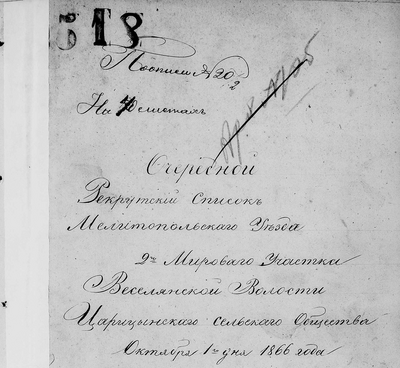 518
Посписи № 20
2
На 4 листахъ
Очередной
Рекрутскій Списокъ
Мелитопольскаго Уѣзда
2го Мироваго Участка
Веселянской Волости
Царицынскаго сельскаго Общества
Октября 1го дня 1866 года